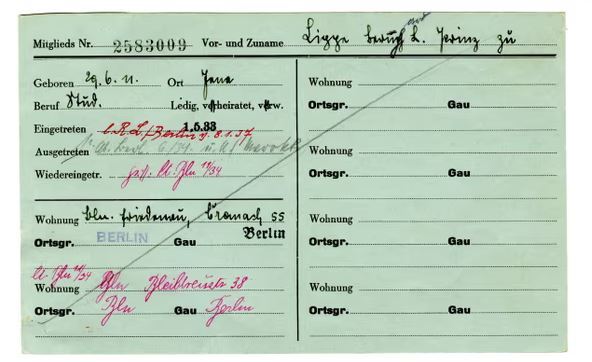 Mitglieds Nr. 2583009 Vor- und Zuname Lippe L. Prinz zu
Geboren 29.6.11. Ort Jena
Beruf Stud. Ledig, verheiratet, verw.
Eingetreten 1.5.33
Ausgetreten
Wiedereingetr.
Wohnung Bln. Friedenau, Cranach 55
Ortsgr. BERLIN Gau Berlin
Wohnung Bln Bleibtreustr 38
Ortsgr. Bln Gau Berlin
Wohnung
Ortsgr. Gau
Wohnung
Ortsgr. Gau
Wohnung
Ortsgr. Gau
Wohnung
Ortsgr. Gau